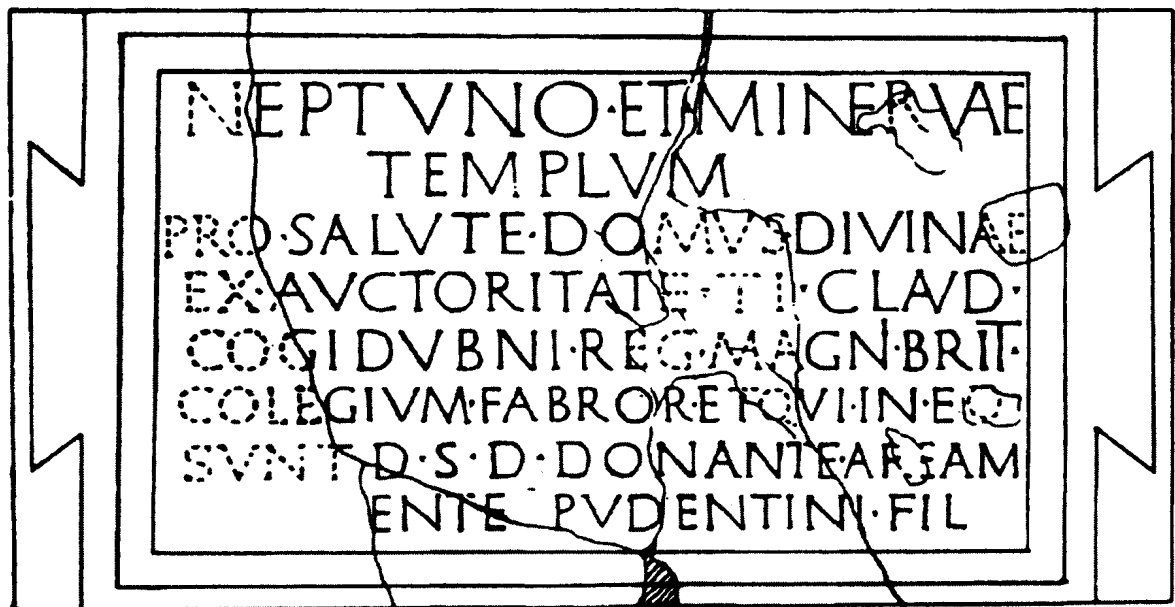 NEPTVNO·ET·MINERVAE
TEMPLVM
PRO·SALVTE·DOMVS DIVINAE
EX·AVCTORITATE·TI·CLAVD·
COGIDVBNI·REG·MAGN·BRIT·
COLEGIVM·FABROR·ET·QVI·IN·EO
SVNT·D·S·D·DONANTE·AREAM
ENTE PVDENTINI·FIL